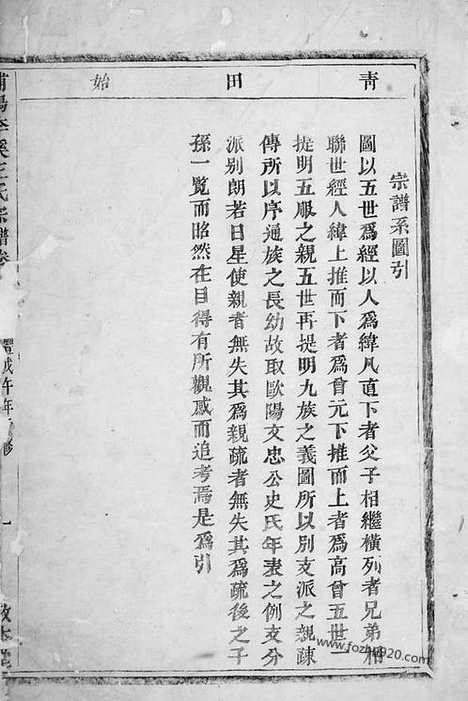 青田始
宗譜系圖引
圖以五世爲經以人爲緯凡直下者父子相繼橫列者兄弟相
聯世經人緯上推而下者爲曾元下推而上者爲高曾五世一
提明五服之親五世再提明九族之義圖所以別支派之親疎
傳所以序通族之長幼故取歐陽文忠公史氏年表之例支分
派別朗若日星使親者無失其爲親疏者無失其爲疏後之子
孫一覽而昭然在目得有所觀感而追考焉是爲引
王氏宗譜卷
戊午年
一
敦本堂
www.fozhu920.com